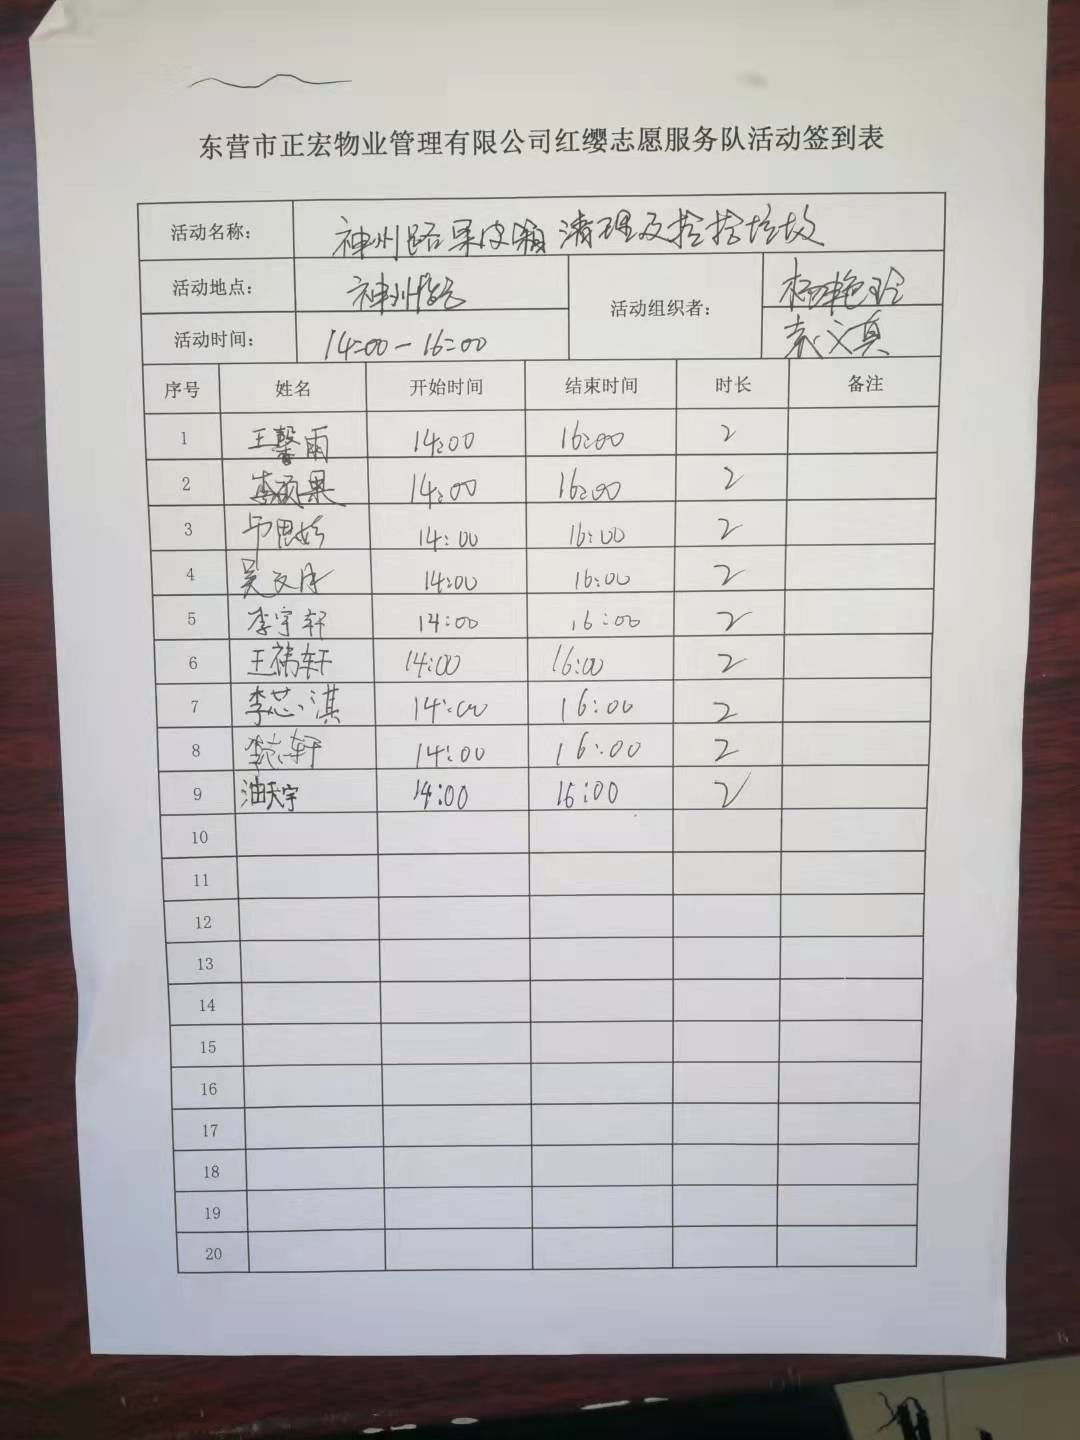 东营市正宏物业管理有限公司红缨志愿服务队活动签到表
活动名称: 神州路果皮箱清理及捡拾垃圾
活动地点: 神州路 活动组织者: 杨艳玲
活动时间: 14:00-16:00 袁义真
序号 姓名 开始时间 结束时间 时长 备注
1 王馨雨 14:00 16:00 2
2 李硕果 14:00 16:00 2
3 思 14:00 16:00 2
4 吴文 14:00 16:00 2
5 李宇轩 14:00 16:00 2
6 王祎轩 14:00 16:00 2
7 李芯淇 14:00 16:00 2
8 李志轩 14:00 16:00 2
9 油天宇 14:00 16:00 2
10
11
12
13
14
15
16
17
18
19
20